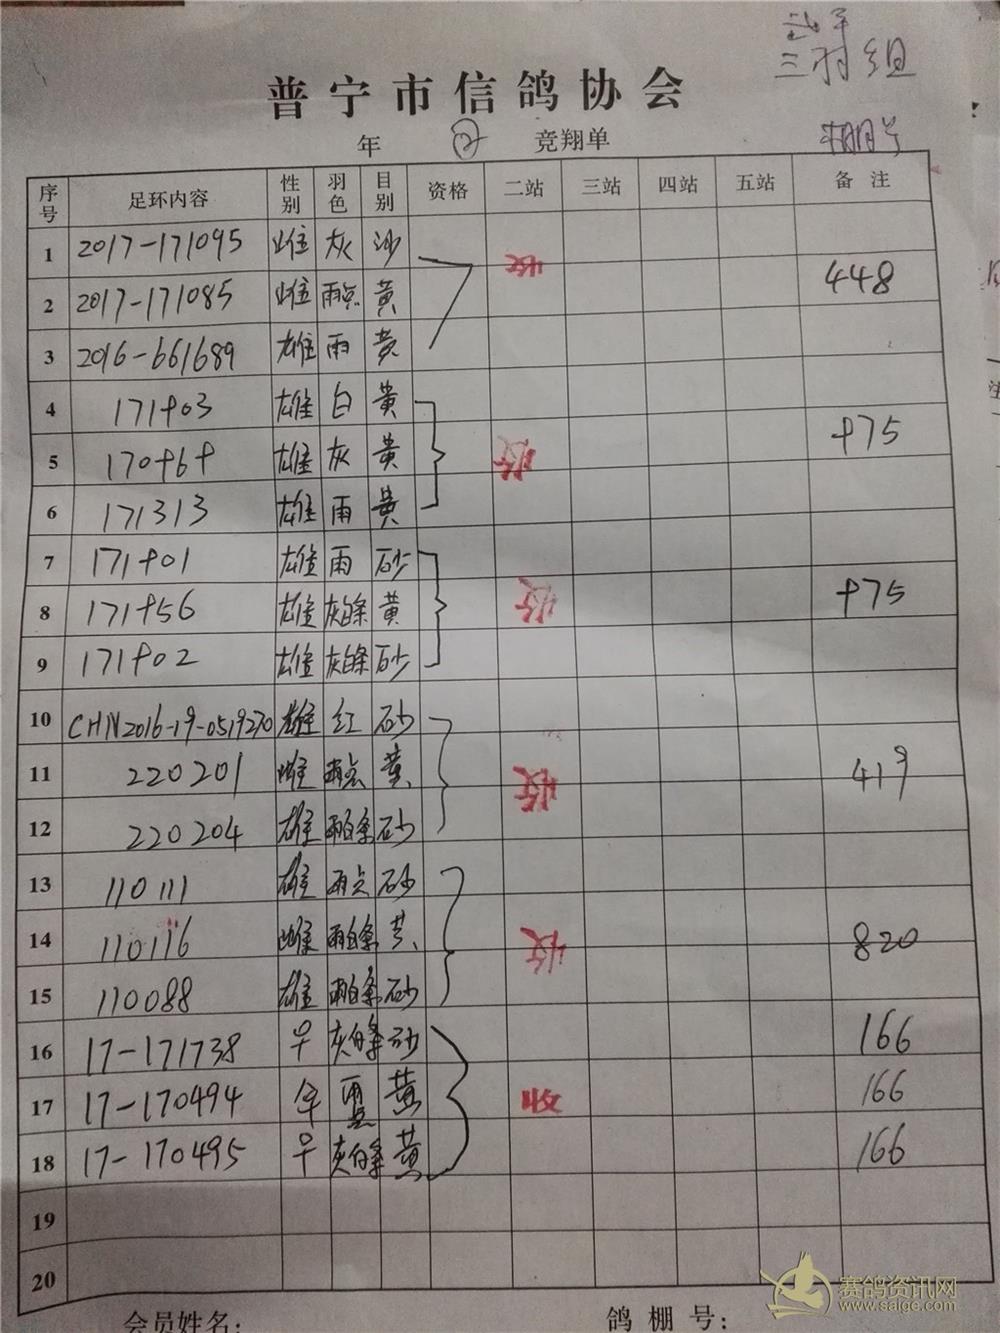 三羽组
普宁市信鸽协会
年 竞翔单
棚号
序号 足环内容 性别 羽色 目别 资格 二站 三站 四站 五站 备 注
1 2017-171095 雌 灰 沙 收
2 2017-171085 雌 雨点 黄 448
3 2016-661689 雄 雨 黄
4 171903 雄 白 黄
5 170969 雄 灰 黄 收 975
6 171313 雄 雨 黄
7 171901 雄 雨 砂
8 171956 雄 灰白条 黄 收 975
9 171902 雄 灰白条 砂
10 CHN2016-19-0519270 雄 红 砂
11 220201 雌 雨点 黄 收 419
12 220204 雄 雨白条 砂
13 110111 雄 雨点 砂
14 110116 雌 雨白条 黄 收 820
15 110088 雄 雨白条 砂
16 17-171738 ♀ 灰白条 砂 166
17 17-170494 黄 收 166
18 17-170495 ♀ 灰白条 黄 166
19
20
会员姓名: 鸽棚号:
赛鸽资讯网
www.saige.com